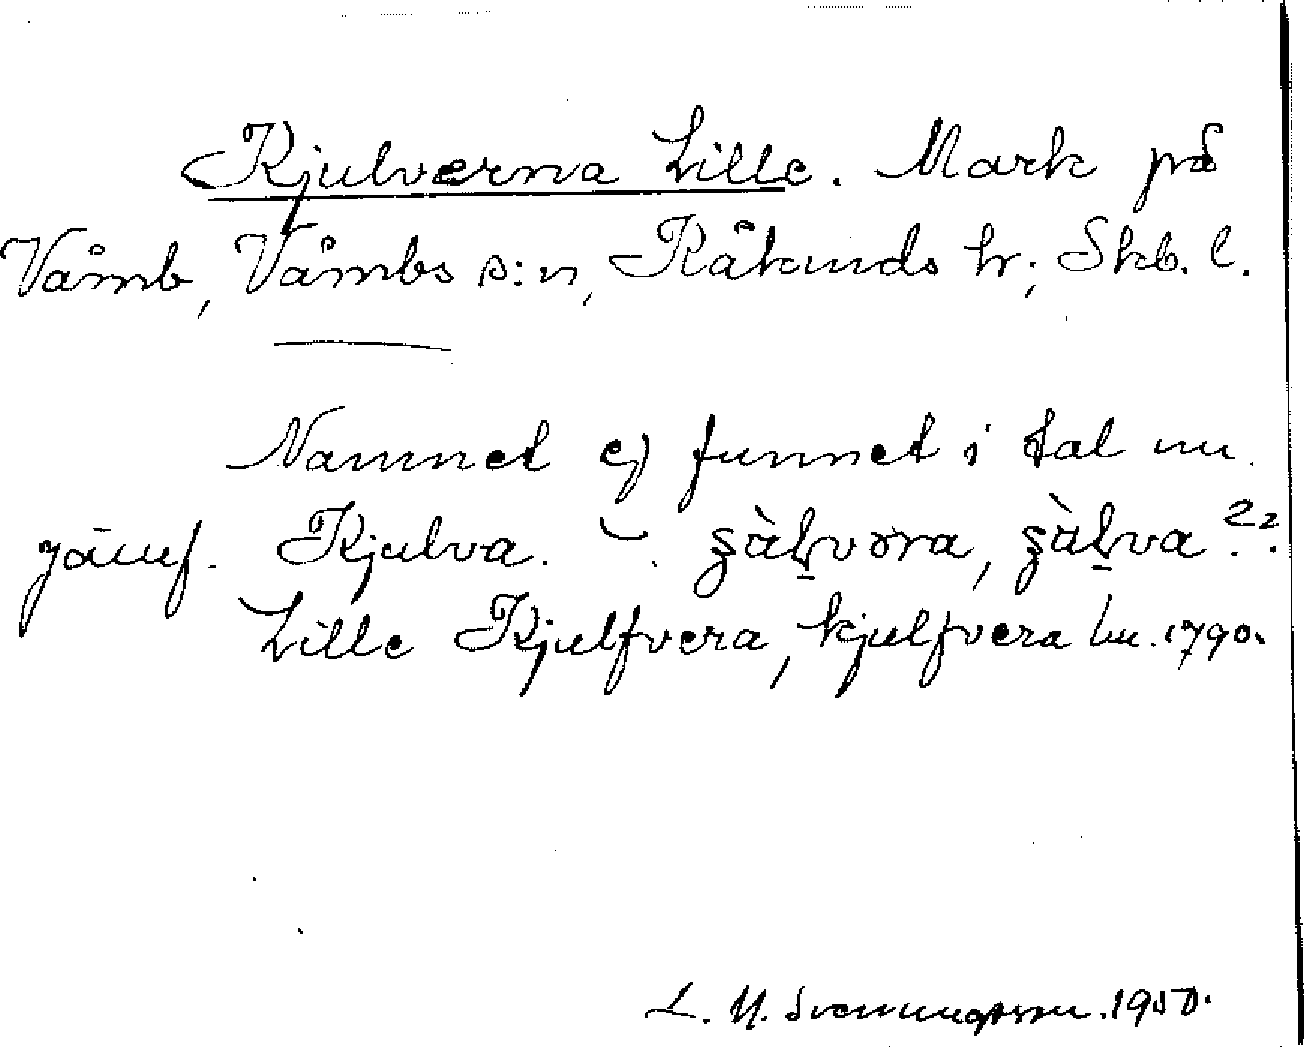 Kjulverna Lille. Mark på
Våmb, Våmbs s:n, Kåkinds hr; Skb. l.
Namnet ej funnet i tal nu.
jämf. Kjulva.
Lille Kjulfvera, kjulfvera lm. 1790.
L. M. Svenungsson. 1950.